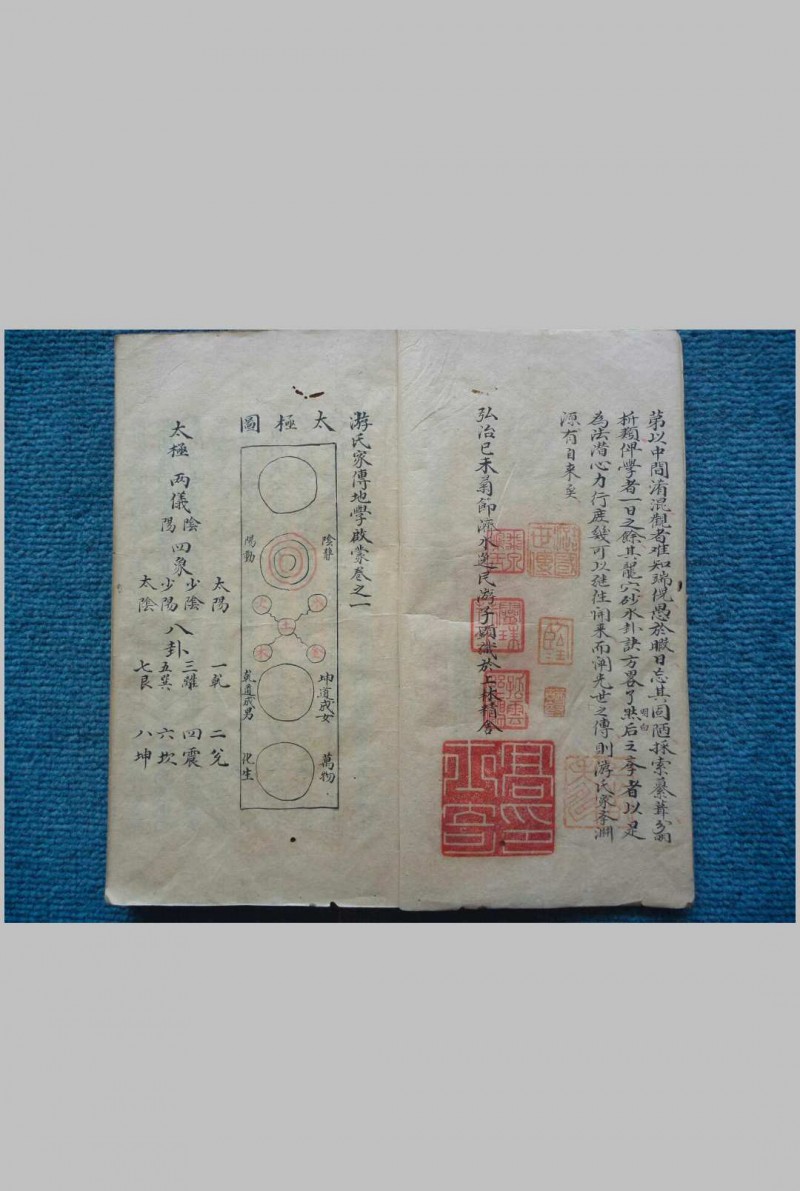 第以中間淆混觀者难知瑞俔愚於暇日忘其固陋採索纂葺分
折類俾學者一日之餘其龍穴砂水卦訣方畧了然后之李者以是
明白
為法潛心力行庶幾可以继往開来而闡先世之傳則游氏家李淵
源有自来矣
弘治己未菊節 水逸民游子 識於上林精舍
游氏家傳地學啟蒙卷之一
太極圖
陰静
陽動
火
水
土
木
金
坤道成女
乾道成男
萬物
化生
太極 兩儀 陰 陽 四象 太陽 少陰 少陽 太陰 八卦 一乾 二兌 三離 四震 五巽 六坎 七艮 八坤